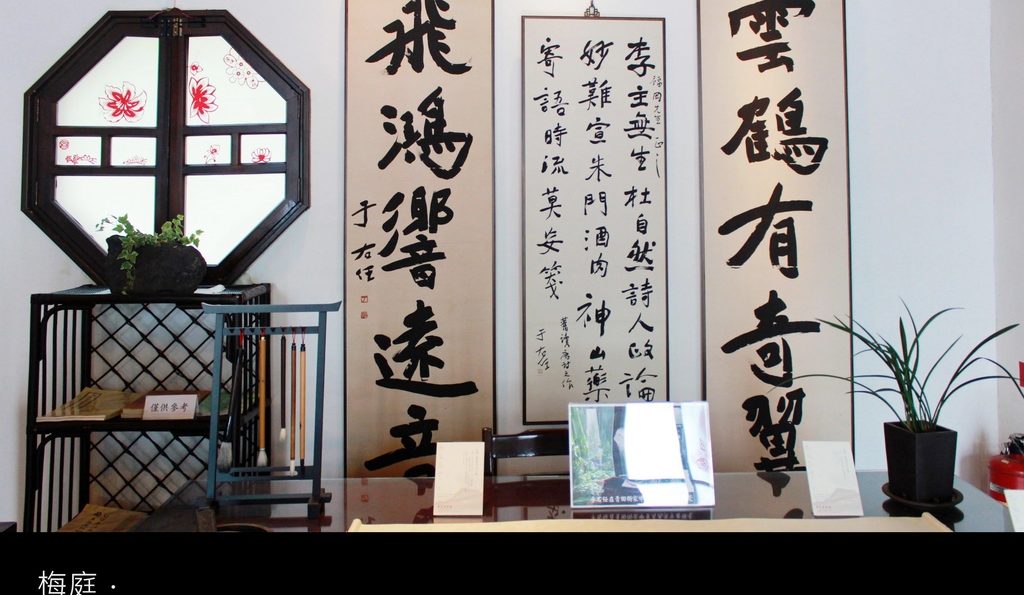 雲鶴有奇翼
李主無生杜自然詩人政論
妙難宣朱門酒肉神山藥
寄語時流莫妄箋
于右任
飛鴻響遠音
于右任
僅供參考
梅庭·